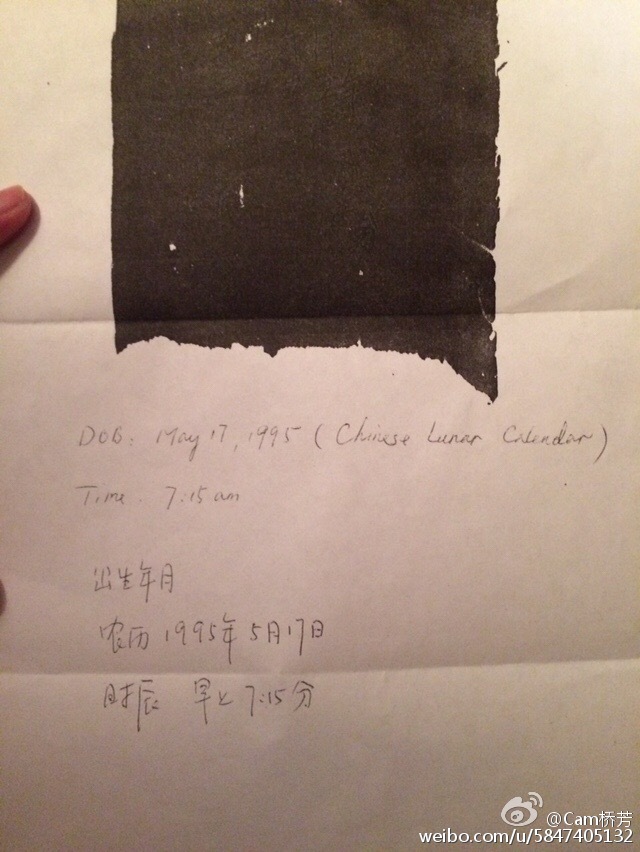 DOB: May 17, 1995 (Chinese Lunar Calendar)
Time. 7:15 am
出生年月
农历 1995年 5月17日
时辰 早上 7:15分
@Cam桥芳
weibo.com/u/5847405132